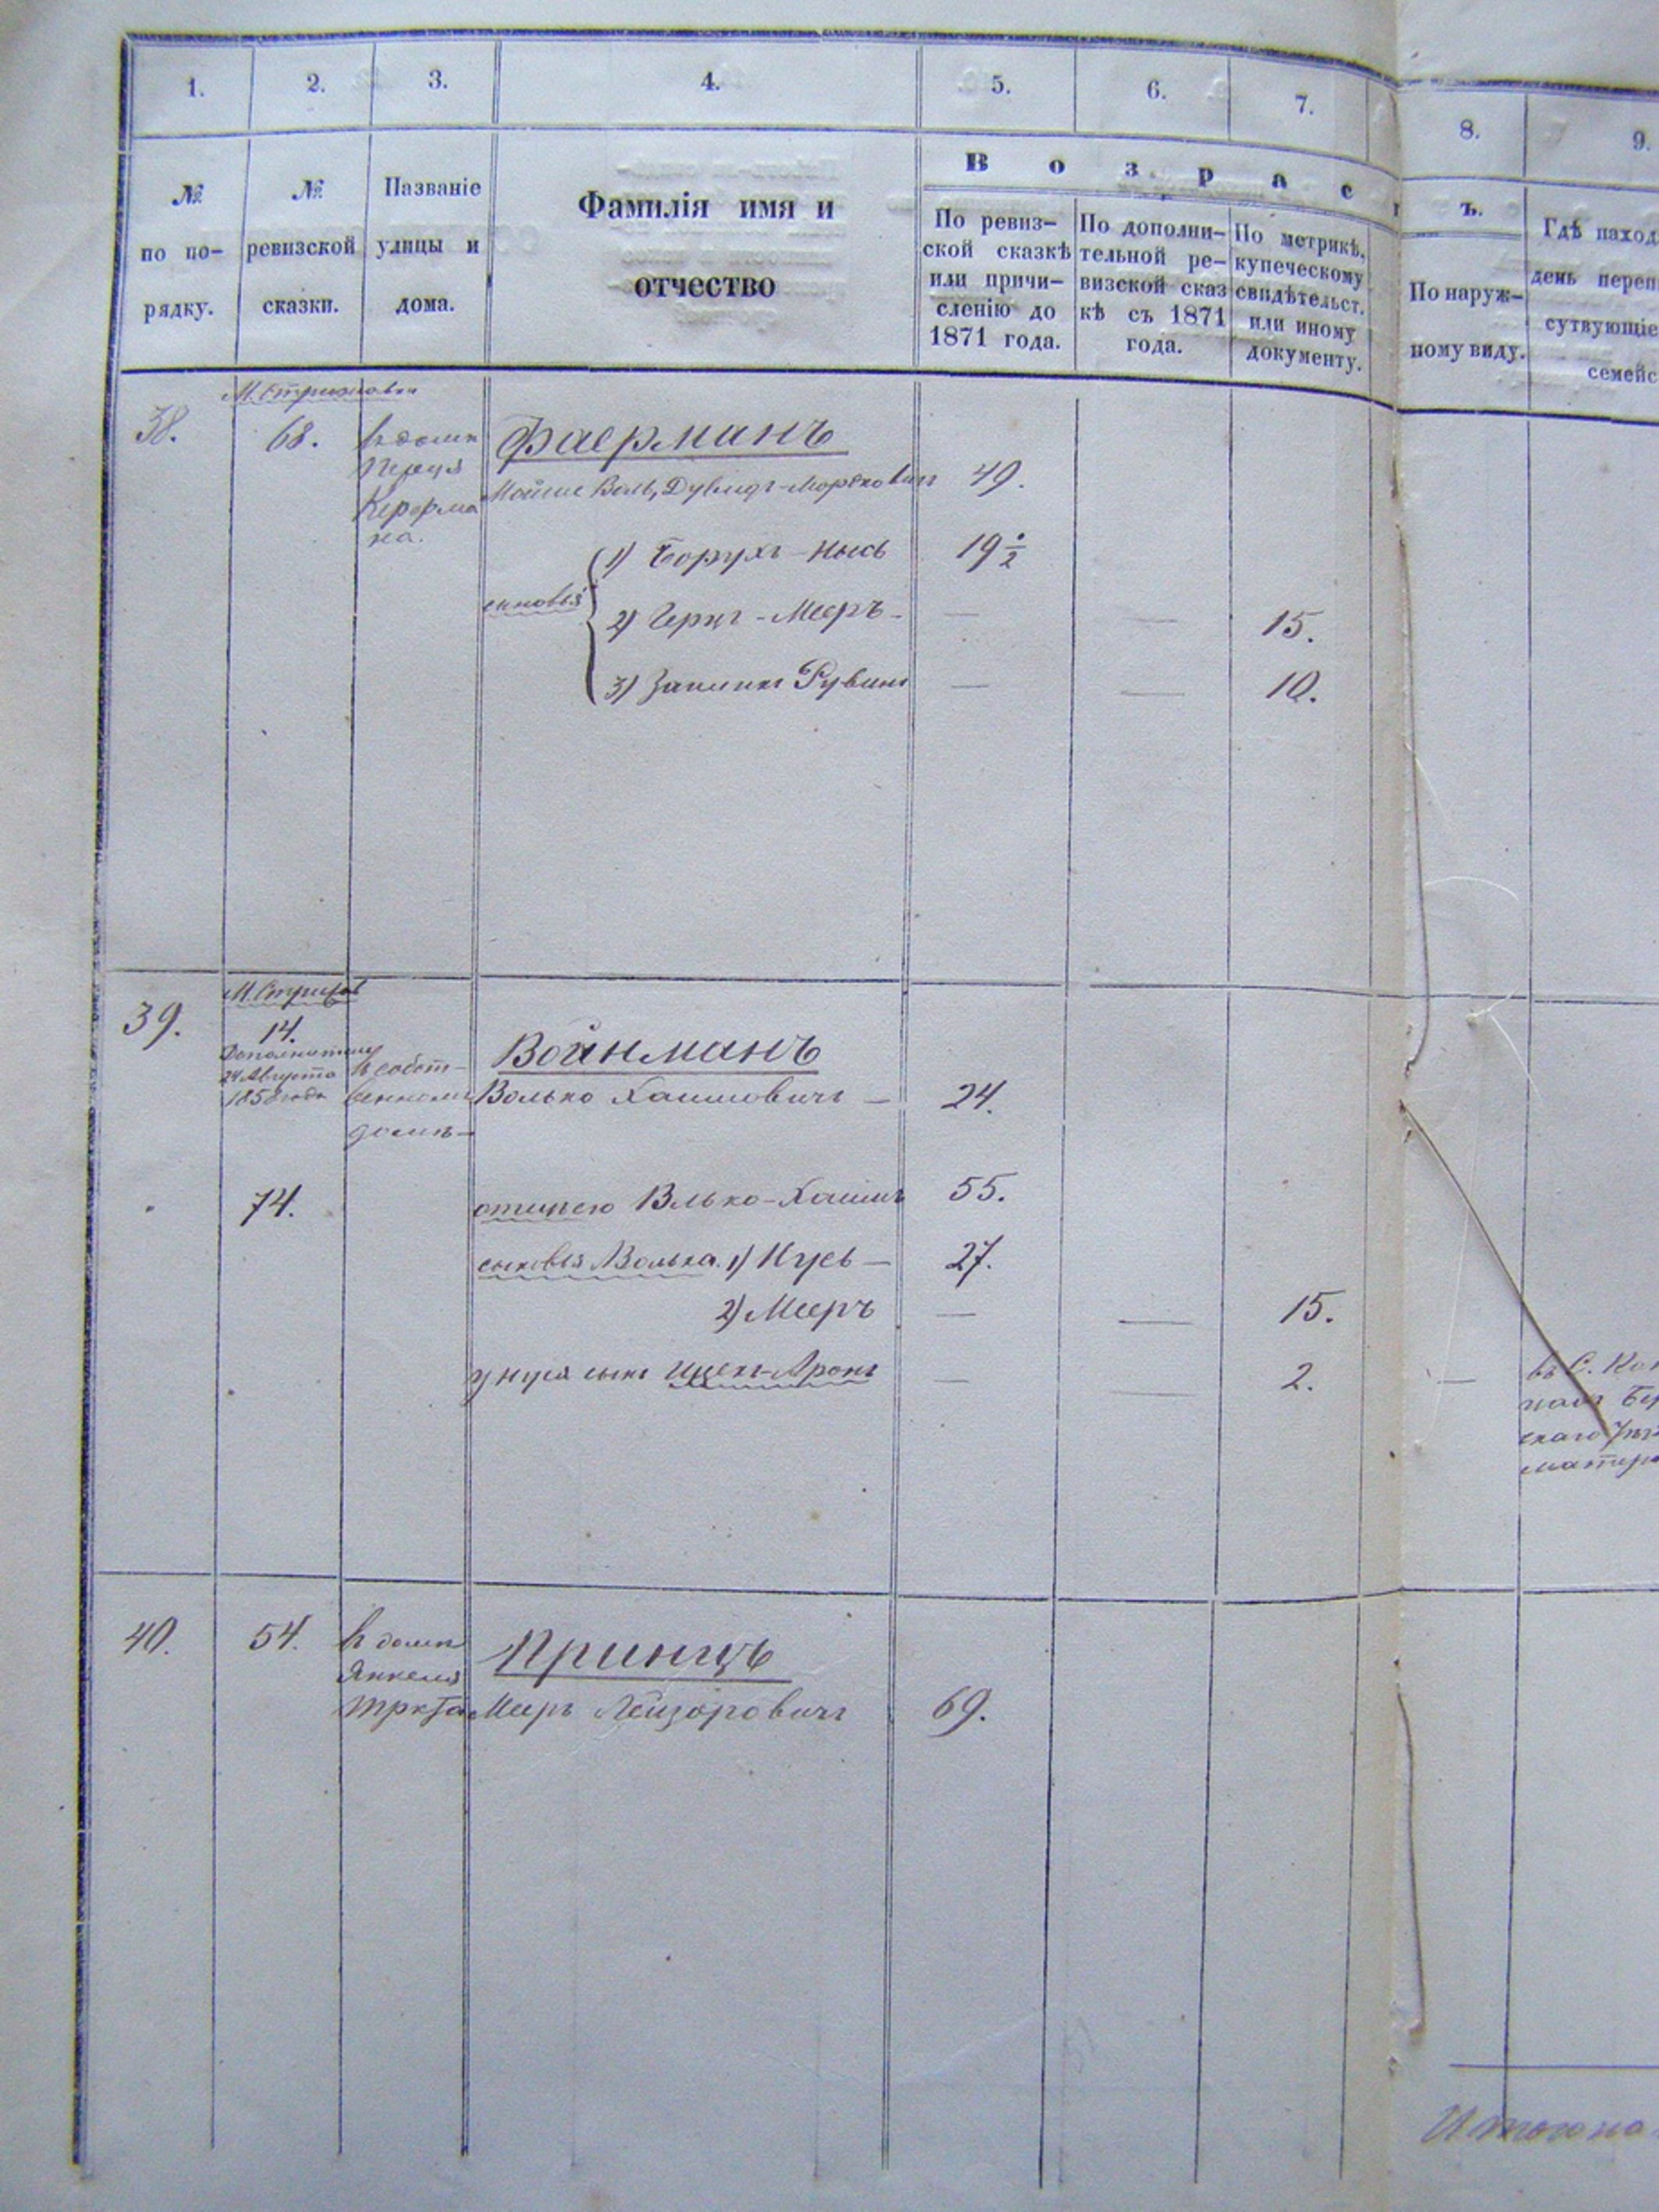 1. 2. 3. 4. 5. 6. 7. 8. 9.
№ по по- рядку.
№ ревизской сказки.
Названіе улицы и дома.
Фамилія имя и отчество
В о з р а с т ъ.
По ревиз-
ской сказкѣ
или причи-
сленію до
1871 года.
По дополни-
тельной ре-
визской сказ
кѣ съ 1871
года.
По метрикѣ,
купеческому
свидѣтельст.
или иному
документу.
По наруж-
ному виду.
Гдѣ наход
день переп
сутвующіе
семейс
М. Стрижовки
38. 68. въ домѣ Фаерманъ
Мойше Волъ, Дувидъ-Мордковичъ 49.
сыновья
1) Борухъ-Нысь 19 ½
2) Герцъ-Мееръ - — — 15.
3) Рувинъ — — 10.
М. Стрижов
39. 14.
24 Августа
1858 года
въ собст-
венномъ
домѣ —
Войнманъ
Волько Хаимовичъ — 24.
74. Хаимъ 55.
сыновья Волька. 1) Нусь — 27.
2) Мееръ — — 15.
у Нуся сынъ Ицехъ-Аронъ — — 2. —
40. 54. въ домѣ
Янкеля
Принцъ
Мееръ Лейзоровичъ 69.
Итого на